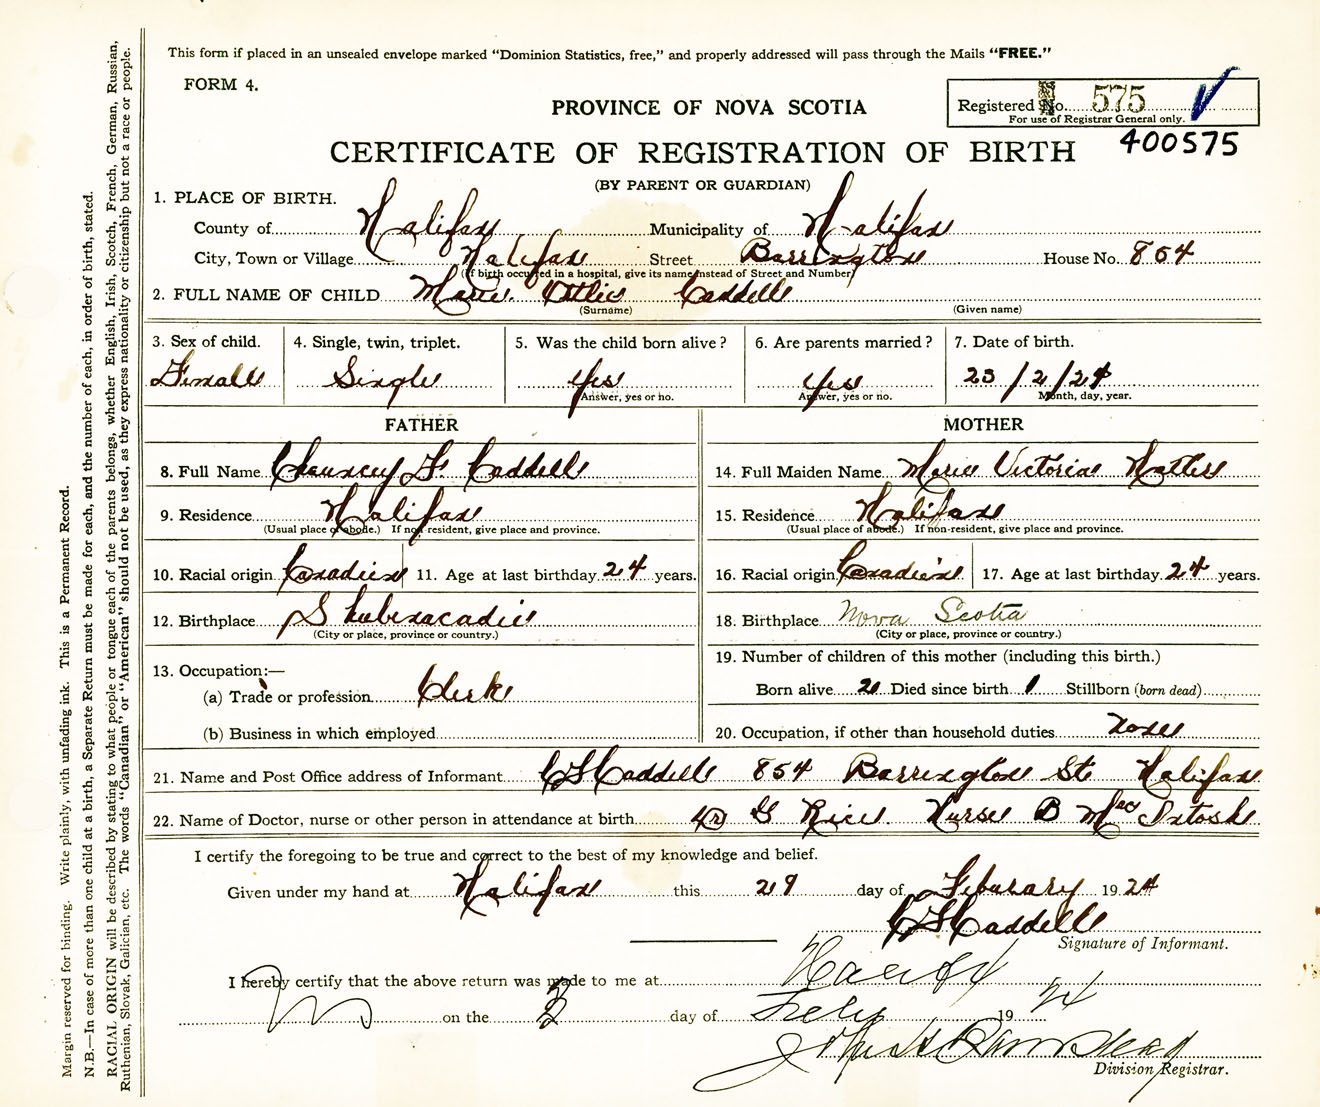 This form if placed in an unsealed envelope marked "Dominion Statistics, free," and properly addressed will pass through the Mails "FREE."
FORM 4.
Registered No. 575
For use of Registrar General only.
PROVINCE OF NOVA SCOTIA
400575
CERTIFICATE OF REGISTRATION OF BIRTH
(BY PARENT OR GUARDIAN)
1. PLACE OF BIRTH.
County of Halifax Municipality of Halifax
City, Town or Village Halifax Street Barrington House No. 854
(If birth occurred in a hospital, give its name instead of Street and Number)
2. FULL NAME OF CHILD Marie Caddell
(Surname) (Given name)
3. Sex of child. 4. Single, twin, triplet. 5. Was the child born alive? 6. Are parents married? 7. Date of birth.
Female Single Yes Yes 23/2/24
Answer, yes or no. Answer, yes or no. Month, day, year.
FATHER MOTHER
8. Full Name Chauncey F. Caddell 14. Full Maiden Name Marie Victoria
9. Residence Halifax 15. Residence Halifax
(Usual place of abode.) If non-resident, give place and province. (Usual place of abode.) If non-resident, give place and province.
10. Racial origin Canadien 11. Age at last birthday 24 years. 16. Racial origin Canadien 17. Age at last birthday 24 years.
12. Birthplace Shubenacadie 18. Birthplace Nova Scotia
(City or place, province or country.) (City or place, province or country.)
19. Number of children of this mother (including this birth.)
13. Occupation:—
(a) Trade or profession Clerk Born alive 2 Died since birth 1 Stillborn (born dead)
(b) Business in which employed 20. Occupation, if other than household duties none
21. Name and Post Office address of Informant C F Caddell 854 Barrington St Halifax
22. Name of Doctor, nurse or other person in attendance at birth Dr G Rice. Nurse B MacIntosh
I certify the foregoing to be true and correct to the best of my knowledge and belief.
Given under my hand at Halifax this 29 day of Feburary 1924
C F Caddell
Signature of Informant.
I hereby certify that the above return was made to me at Halifax
on the day of 1924
Division Registrar.
Margin reserved for binding. Write plainly, with unfading ink. This is a Permanent Record.
N.B.—In case of more than one child at a birth, a Separate Return must be made for each, and the number of each, in order of birth, stated.
RACIAL ORIGIN will be described by stating to what people or tongue each of the parents belongs, whether English, Irish, Scotch, French, German, Russian,
Ruthenian, Slovak, Galician, etc. The words "Canadian" or "American" should not be used, as they express nationality or citizenship but not a race or people.